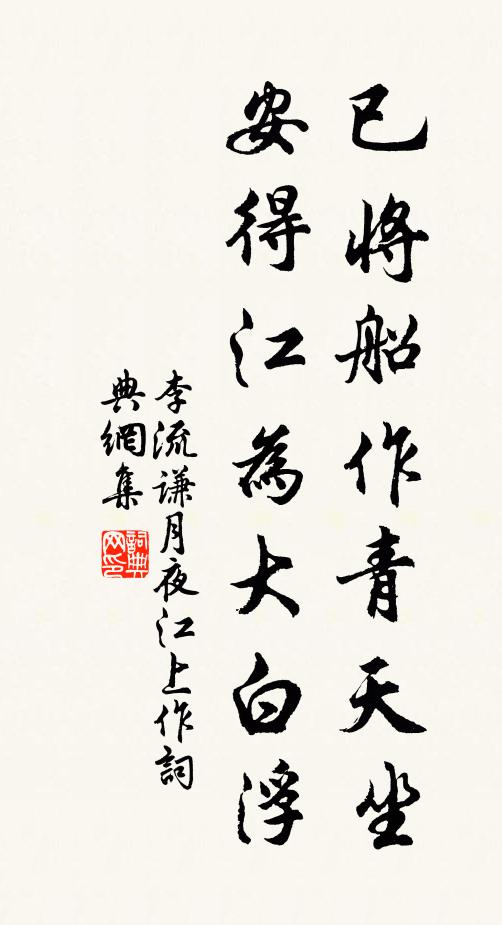 已將船作青天坐
安得江為大白浮
李流謙月夜江上作詞
典網集
詞典
网印